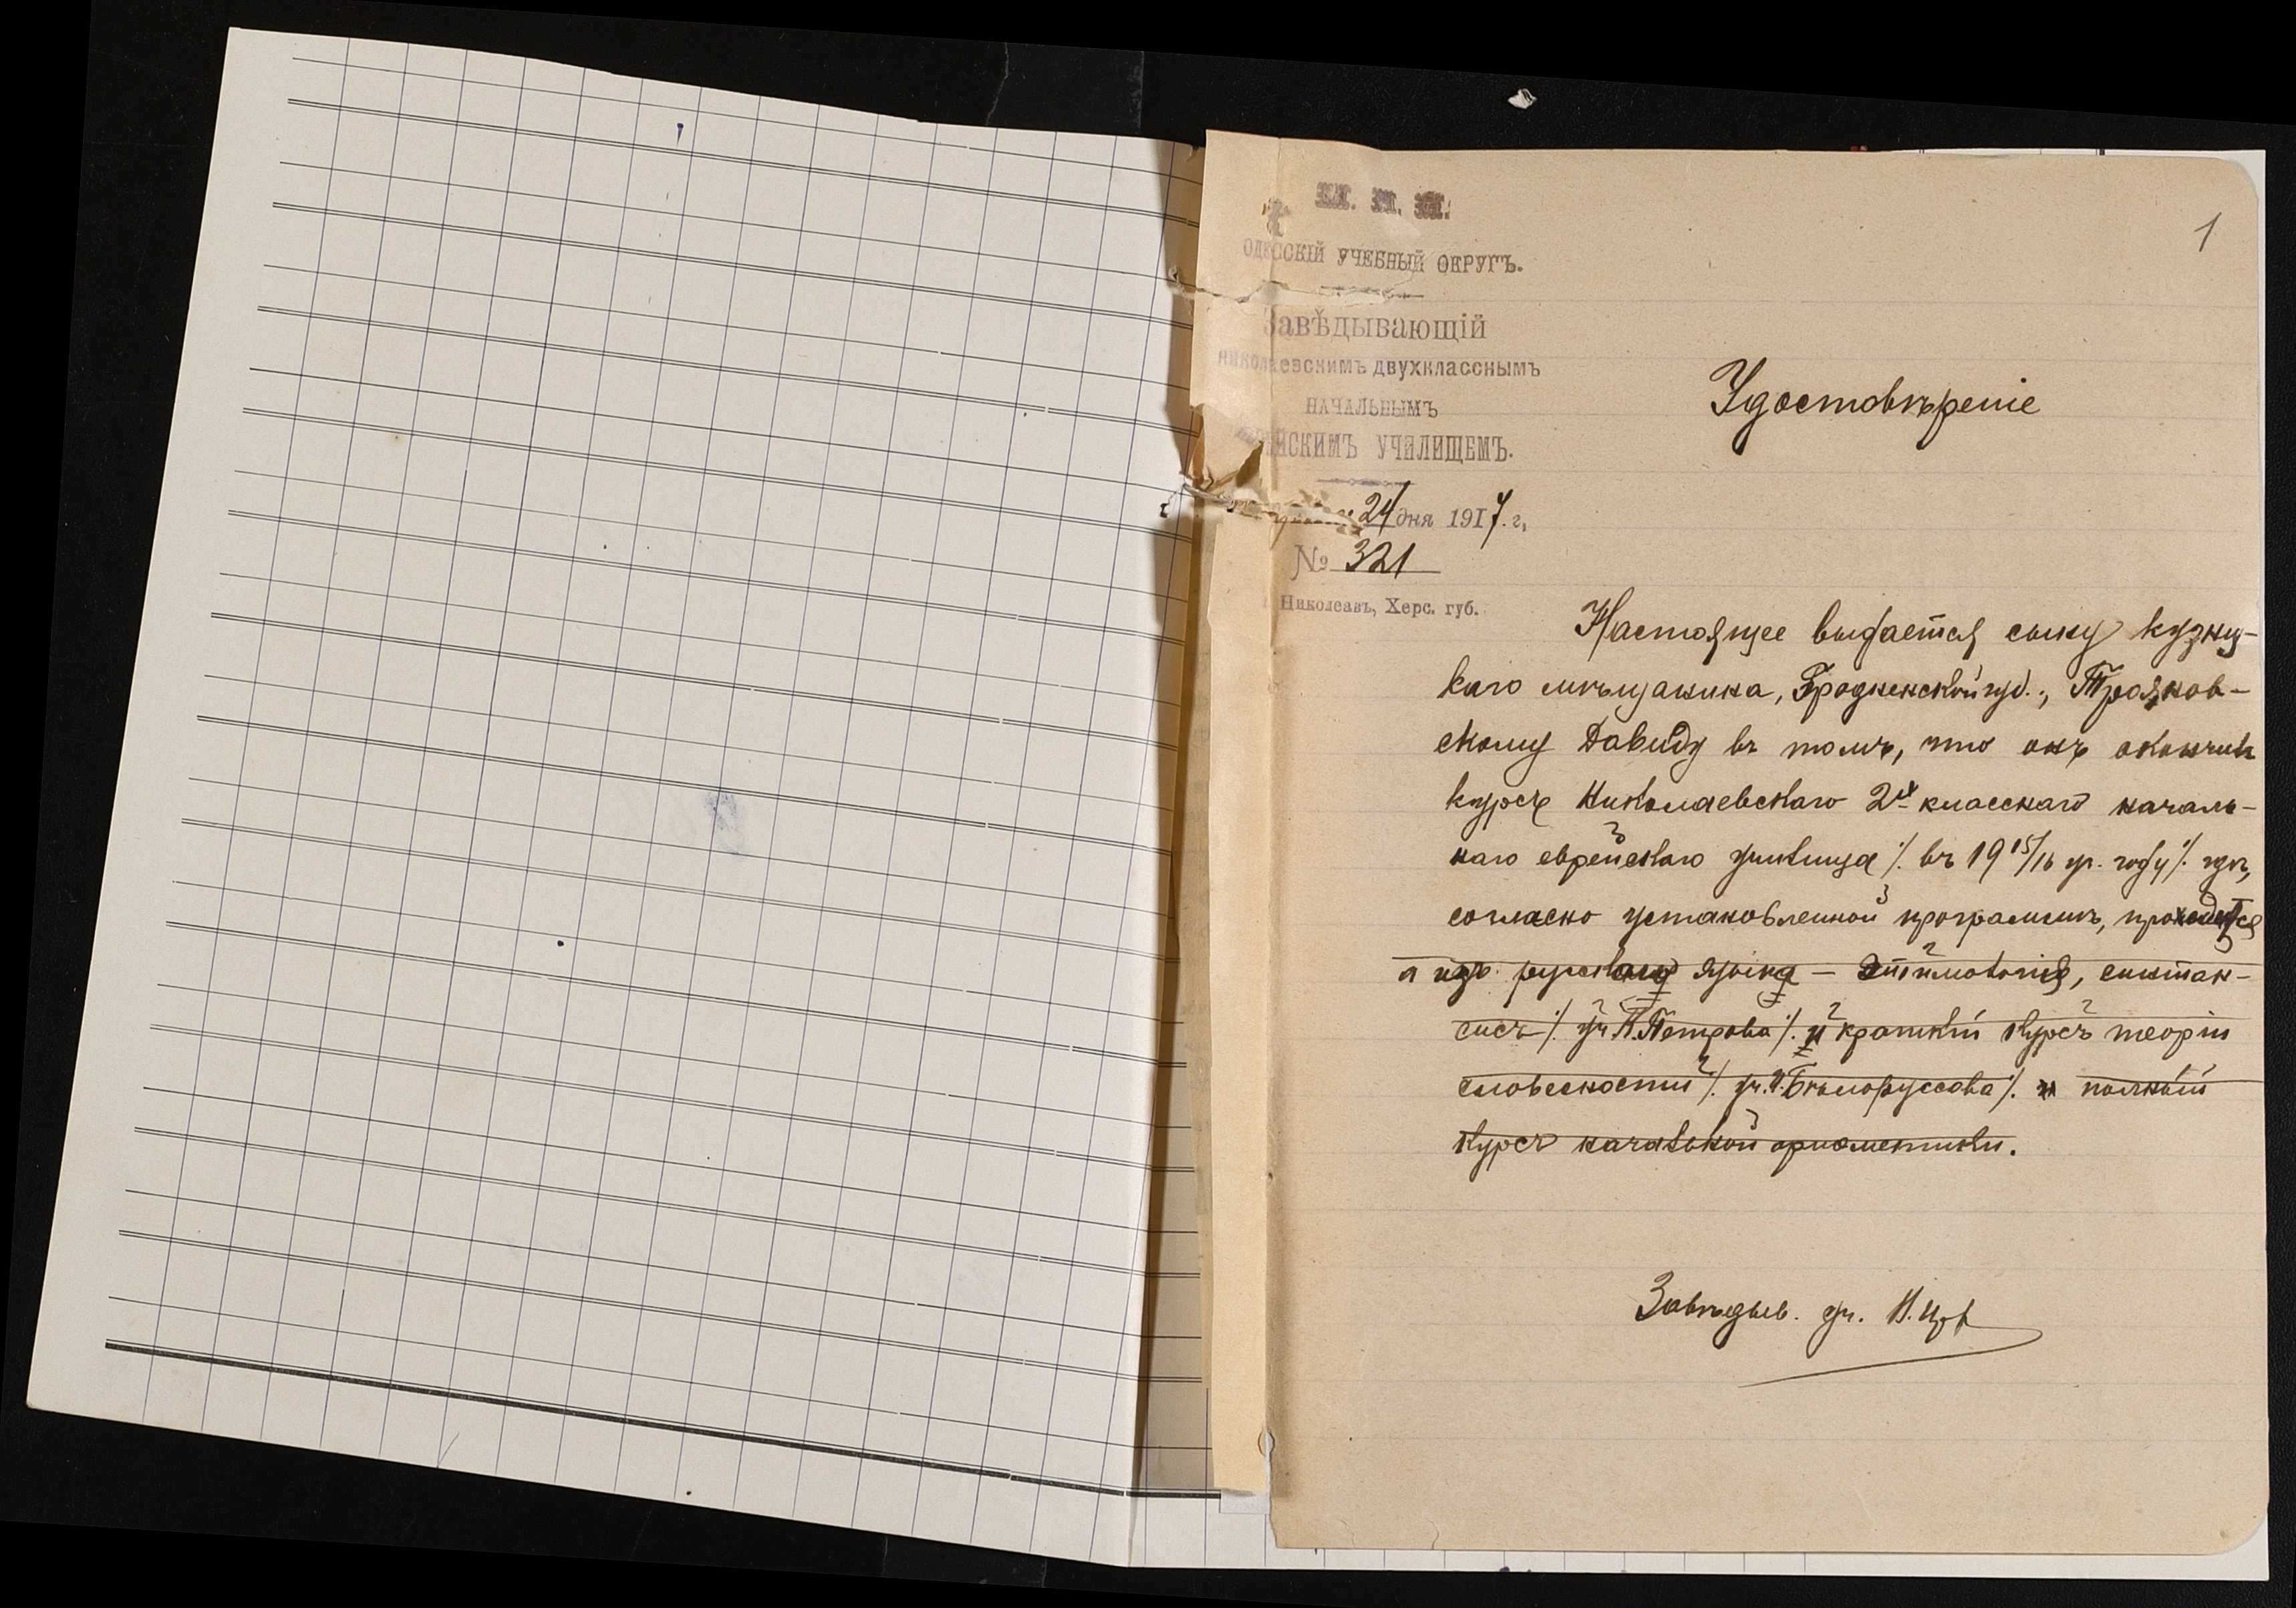 1
М. Н. П.
ОДЕССКІЙ УЧЕБНЫЙ ОКРУГЪ.
Завѣдывающій
николаевскимъ двухкласснымъ
НАЧАЛЬНЫМЪ
ЕВРЕЙСКИМЪ УЧИЛИЩЕМЪ.
24 дня 1917. г.
№ 321
Николаевъ, Херс. губ.
Удостовѣреніе
Настоящее выдается сыну кузни-
каго мѣщанина, Гродненской губ., Трояков-
скому Давиду въ томъ, что онъ окончилъ
курсъ Николаевскаго 2хъ класснаго началь-
наго еврейскаго училища /. въ 1915/16 уч. году /. гдѣ,
согласно установленной программѣ, проходятся
изъ русскаго языка – этимологія, синтак-
сисъ /. уч. К. Петрова /. и краткій курсъ теоріи
словесности /. уч. И. Бѣлоруссова /. и полный
курсъ начальной ариѳметики.
Завѣдыв. уч.